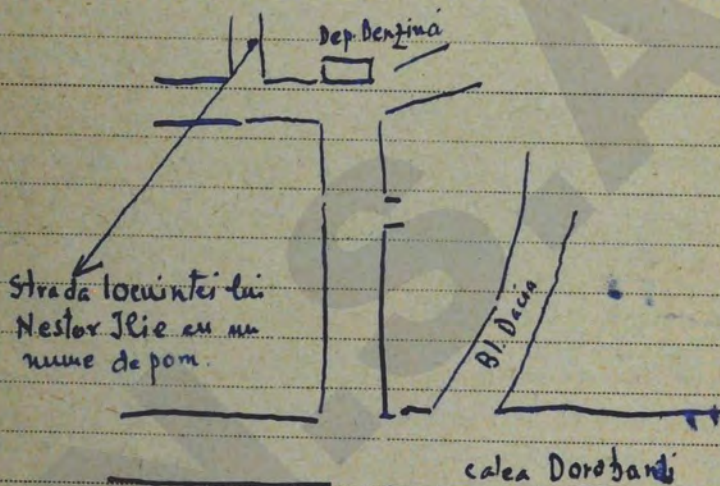 Dep. Benzină
Strada locuintei lui
Nestor Ilie cu un
nume de pom.
Bl. Dacia
calea Dorobanti